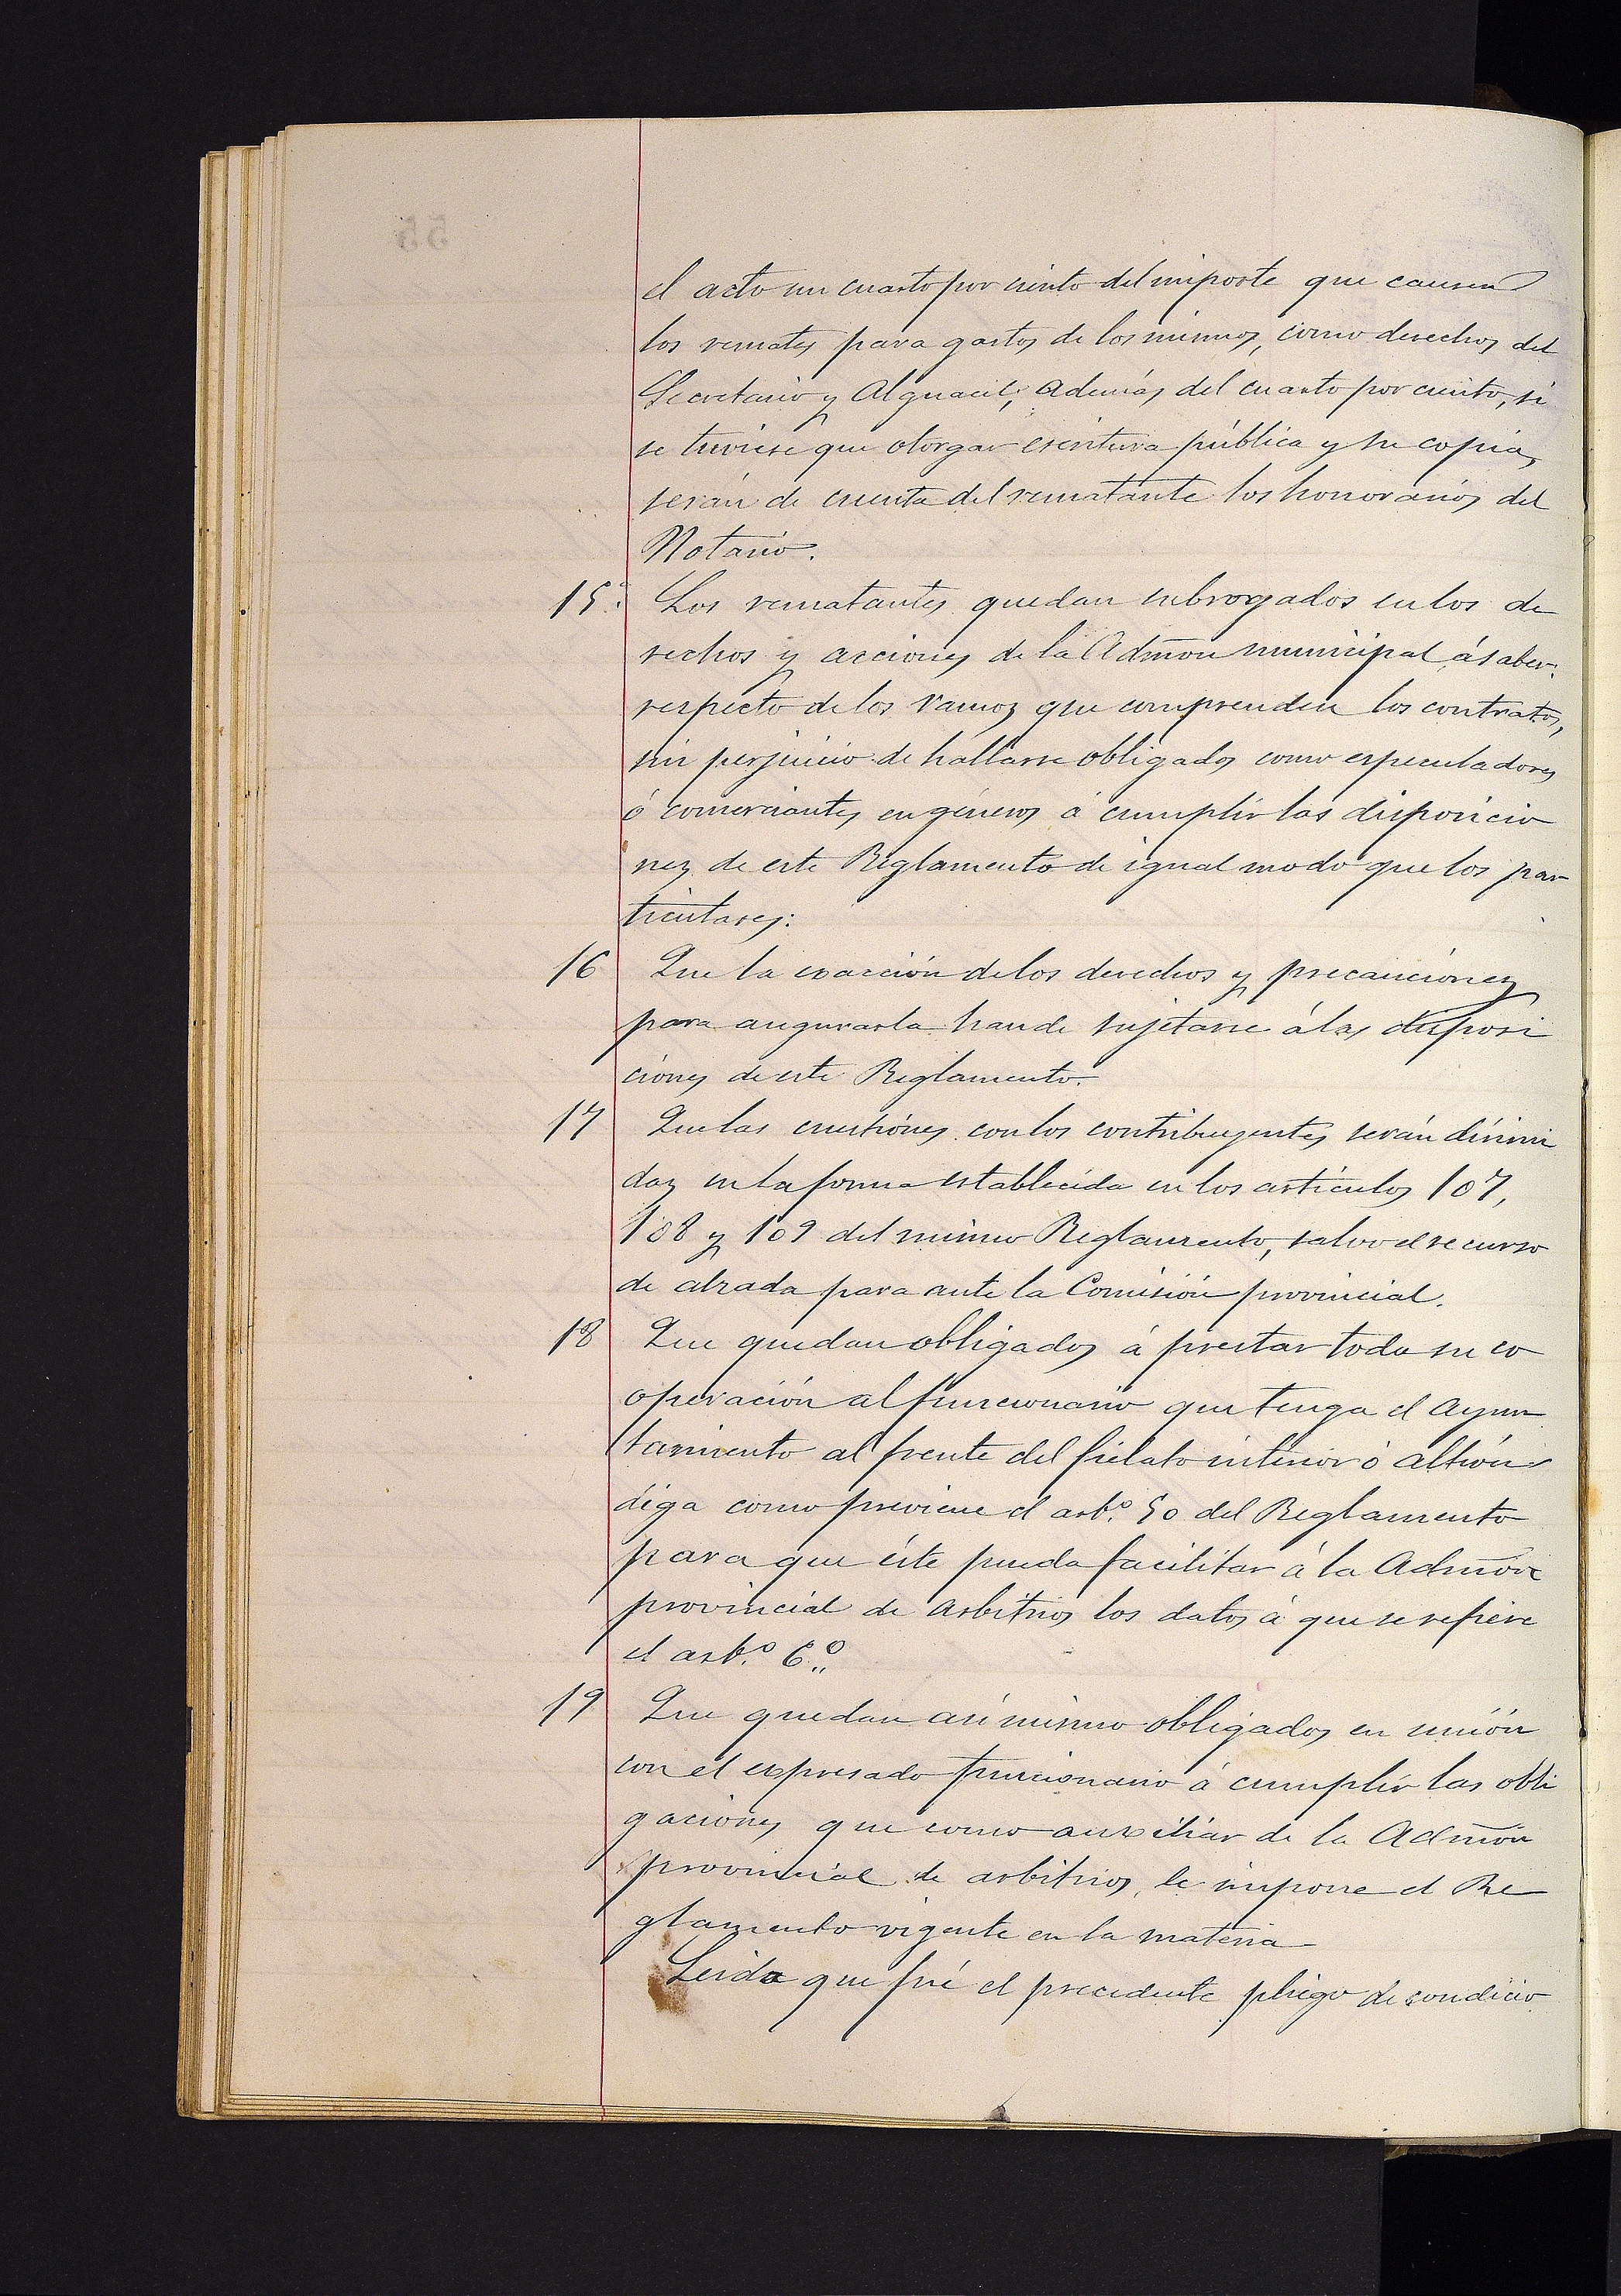 el acto un cuarto por ciento del importe que causen
los remates para gastos de los mismos, como derechos del
Secretario y Alguacil; Además del cuarto por ciento, si
se tuviese que otorgar escritura pública y su copia,
serán de cuenta del rematante los honorarios del
Notario.
15ª Los rematantes quedan subrogados en los de
rechos y acciones de la Admon municipal á saber:
respecto de los ramos que comprenden los contratos,
sin perjuicio de hallarse obligados como especuladores
ó comerciantes en géneros á cumplir las disposicio
nes de este Reglamento de igual modo que los par
ticulares:
16 Que la exacción de los derechos y precauciones
para asegurarla han de sujetarse á las disposi
ciones de este Reglamento.
17 Que las cuestiones con los contribuyentes serán dirimi
das en la forma establecida en los artículos 107,
108 y 109 del mismo Reglamento, salvo el recurso
de alzada para ante la Comisión provincial.
18 Que quedan obligados á prestar toda su co
operación al funcionario que tenga el Ayun
tamiento al frente del fielato interior ó alhón
diga como previene el artº. 50 del Reglamento
para que éste pueda facilitar á la Admón
provincial de arbitrios los datos á que se refiere
el artº. 6º.
19 Que quedan asi mismo obligados en unión
con el expresado funcionario á cumplir las obli
gaciones que como auxiliar de la Admón
provincial de arbitrios, le impone el Re
glamento vigente en la materia
Leida que fué el precedente pliego de condicio
55